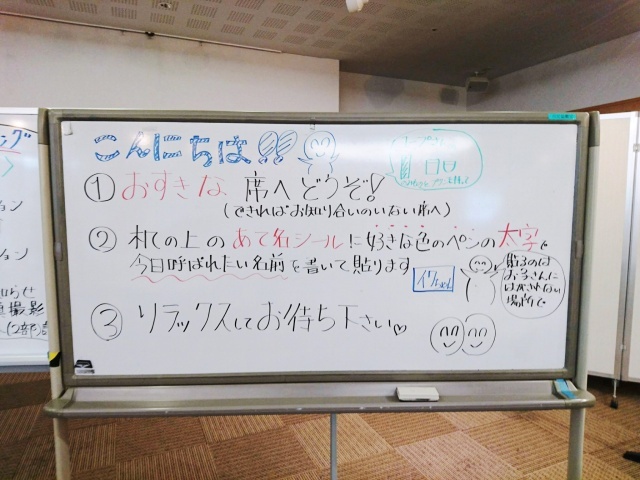 こんにちは!!
① おすきな 席へ どうぞ!
(できればお知り合いのいない席へ)
② 机の上の あて名シールに好きな色のペンの太字で
今日呼ばれたい名前を書いて貼ります
貼るのは
お子さんに
はがされない
場所で
③ リラックスしてお待ち下さい♡